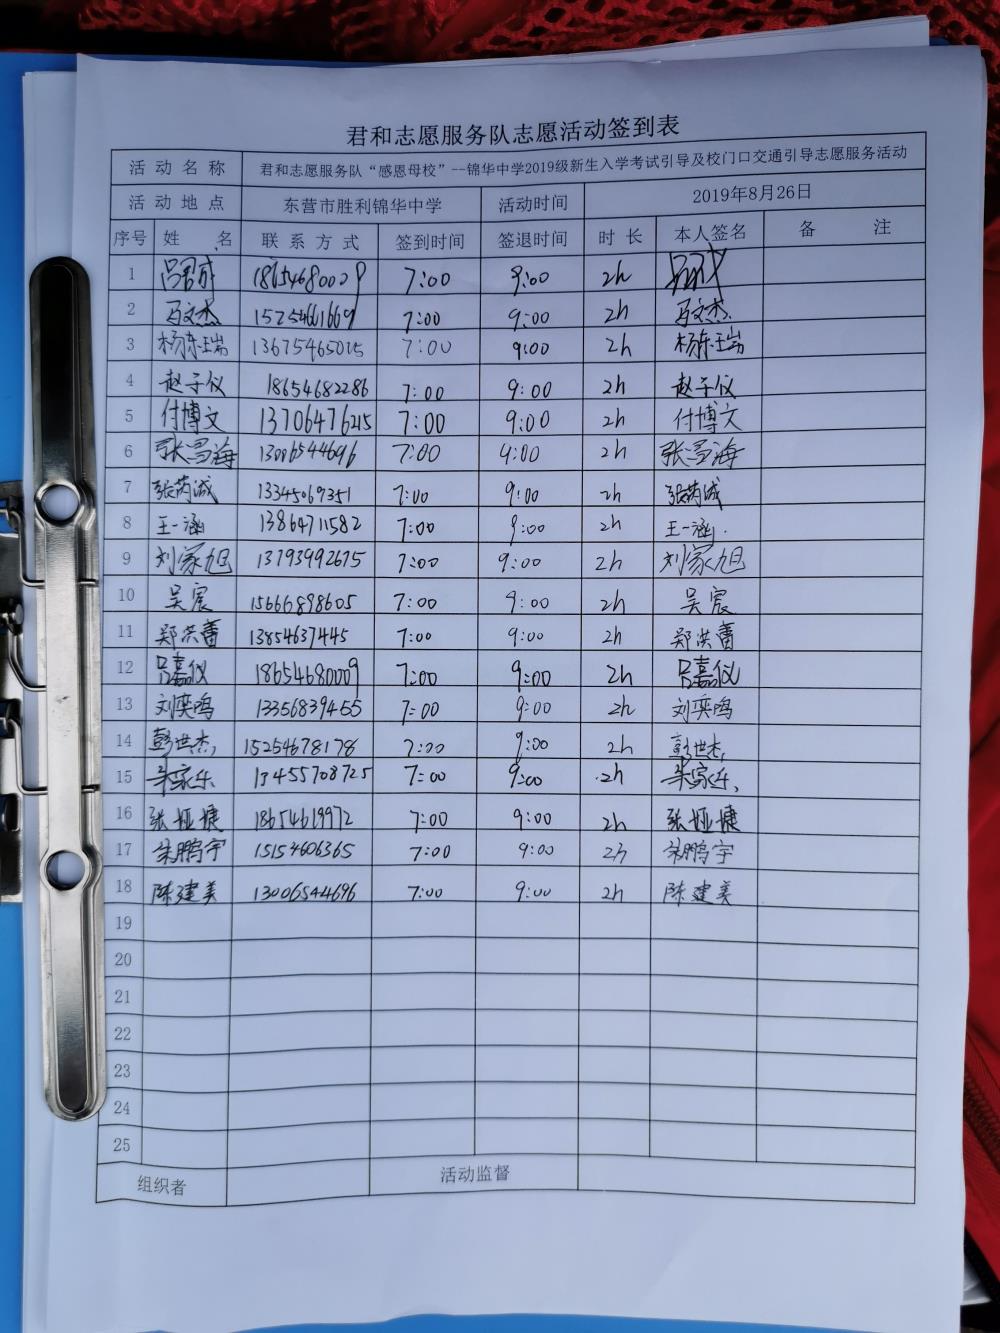 君和志愿服务队志愿活动签到表
活动名称 君和志愿服务队“感恩母校”--锦华中学2019级新生入学考试引导及校门口交通引导志愿服务活动
活动地点 东营市胜利锦华中学 活动时间 2019年8月26日
序号 姓 名 联系方式 签到时间 签退时间 时长 本人签名 备 注
1 吕君成 18654680029 7:00 9:00 2h
2 马文杰 15254661669 7:00 9:00 2h 马文杰.
3 杨东瑞 13675465015 7:00 9:00 2h 杨东瑞
4 赵子仪 18654682286 7:00 9:00 2h 赵子仪
5 付博文 13706476215 7:00 9:00 2h 付博文
6 张昌海 13006544696 7:00 9:00 2h 张昌海
7 张芮诚 13345069351 7:00 9:00 2h 张芮诚
8 王一涵 13864711582 7:00 9:00 2h 王一涵.
9 刘家旭 13793992675 7:00 9:00 2h 刘家旭
10 吴宸 15666898605 7:00 9:00 2h 吴宸
11 郑洪蕾 13854637445 7:00 9:00 2h 郑洪蕾
12 吕嘉仪 18654680009 7:00 9:00 2h 吕嘉仪
13 刘奕鸣 13356839455 7:00 9:00 2h 刘奕鸣
14 彭世杰, 15254678178 7:00 9:00 2h 彭世杰,
15 家乐 13455708725 7:00 9:00 2h 家乐、
16 张娅捷 18654619972 7:00 9:00 2h 张娅捷
17 鹏宇 15154606365 7:00 9:00 2h 鹏宇
18 陈建美 13006544696 7:00 9:00 2h 陈建美
19
20
21
22
23
24
25
组织者 活动监督